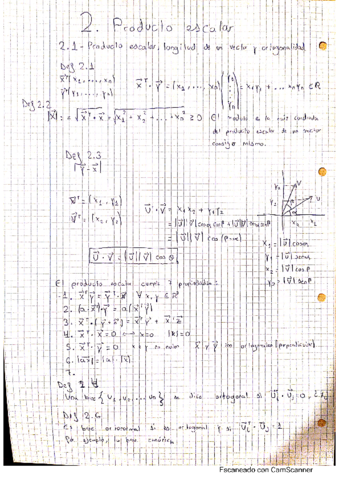 2. Producto escalar
2.1 - Producto escalar, longitud de un vector y ortogonalidad
Def 2.1
x⃗ᵀ(x₁, ..., xₙ)
y⃗ᵀ(y₁, ..., yₙ)
x⃗ᵀ · y⃗ = (x₁, ..., xₙ) (y₁ ⋮ yₙ) = x₁y₁ + ... xₙyₙ ∈ ℝ
Def 2.2
|x⃗| := √x⃗ᵀ · x⃗ = √x₁² + x₂² + ... + xₙ² ≥ 0 El modulo es la raíz cuadrada
del producto escalar de un vector
consigo mismo.
Def 2.3
|y⃗ - x⃗|
u⃗ᵀ = (x₁, y₁)
v⃗ᵀ = (x₂, y₂)
u⃗ · v⃗ = x₁x₂ + y₁y₂
= |u⃗||v⃗|
= |u⃗||v⃗| cos
u⃗ · v⃗ = |u⃗||v⃗| cos θ
x₁ = |u⃗| cos α
y₁ = |u⃗| sen α
x₂ = |v⃗| cos β
y₂ = |v⃗| sen β
El producto escalar cumple propiedades:
1. x⃗ᵀ y⃗ = y⃗ᵀ · x⃗ ∀ x, y ∈ ℝⁿ
2. y⃗ = a(x⃗ᵀ y⃗)
3. x⃗ᵀ · (y⃗ + z⃗) = x⃗ᵀ y⃗ + x⃗ᵀ z⃗
4. x⃗ᵀ · x⃗ = 0 ↔ x = 0 |x| = 0
5. x⃗ᵀ · y⃗ = 0 x⃗ y y⃗ son ortogonales (perpendiculares)
6. |ax⃗| = |a| · |x⃗|
7.
Def 2.4
Una base {u₁, u₂, ... uₙ} se dice ortogonal si u⃗ᵢᵀ · u⃗ⱼ = 0,
Def 2.6
base ortonormal si es ortogonal y si u⃗ᵢᵀ · u⃗ᵢ = 1
Por ejemplo, la base canónica
Escaneado con CamScanner